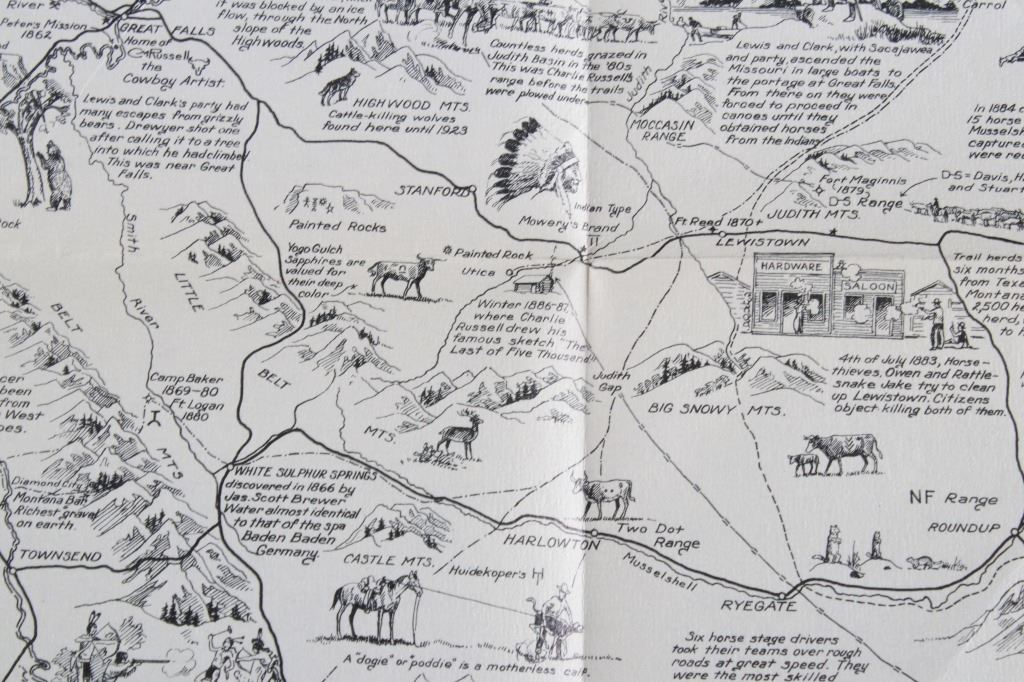 River
Peter's Mission
1862
GREAT FALLS
Home of
Russell
the
Cowboy Artist.
Lewis and Clark's party had
many escapes from grizzly
bears. Drewyer shot one
after calling it to a tree
into which he had climbed
This was near Great
Falls.
it was blocked by an ice
flow, through the North
slope of the
Highwoods.
HIGHWOOD MTS.
Cattle-killing wolves
found here until 1923
Countless herds grazed in
Judith Basin in the '80s
This was Charlie Russell's
range before the trails
were plowed under
Judith
River
MOCCASIN
RANGE
Carrol
Lewis and Clark, with Sacajawea
and party, ascended the
Missouri in large boats to
the portage at Great Falls.
From there on they were
forced to proceed in
canoes until they
obtained horses
from the Indians
In 1884
15 horse
Musselsh
captured
were rec
Fort Maginnis
1879
D-S Range
D-S = Davis, H
and Stuart
JUDITH MTS.
STANFORD
Indian Type
Mowery's Brand
Ft Reed 1870
LEWISTOWN
Painted Rocks
Painted Rock
Utica
Yogo Gulch
Sapphires are
valued for
their deep
color
Winter 1886-87
where Charlie
Russell drew his
famous sketch "The
Last of Five Thousand"
HARDWARE
SALOON
Trail herds
six months
from Texa
Montana
2,500 he
herd,
to
Smith
River
LITTLE
BELT
MTS.
BELT
MTS
Camp Baker
1869-80
Ft Logan
1880
Judith
Gap
BIG SNOWY MTS.
4th of July 1883, Horse-
thieves, Owen and Rattle-
snake Jake try to clean
up Lewistown. Citizens
object killing both of them.
ock
cer
been
from
West
oes.
Diamond City
Montana Bar
Richest gravel
on earth.
TOWNSEND
WHITE SULPHUR SPRINGS
discovered in 1866 by
Jas. Scott Brewer
Water almost identical
to that of the spa
Baden Baden
Germany.
CASTLE MTS.
HARLOWTON
Two Dot
Range
Musselshell
NF Range
ROUNDUP
Huidekoper's
RYEGATE
A "dogie" or "poddie" is a motherless calf.
Six horse stage drivers
took their teams over rough
roads at great speed. They
were the most skilled